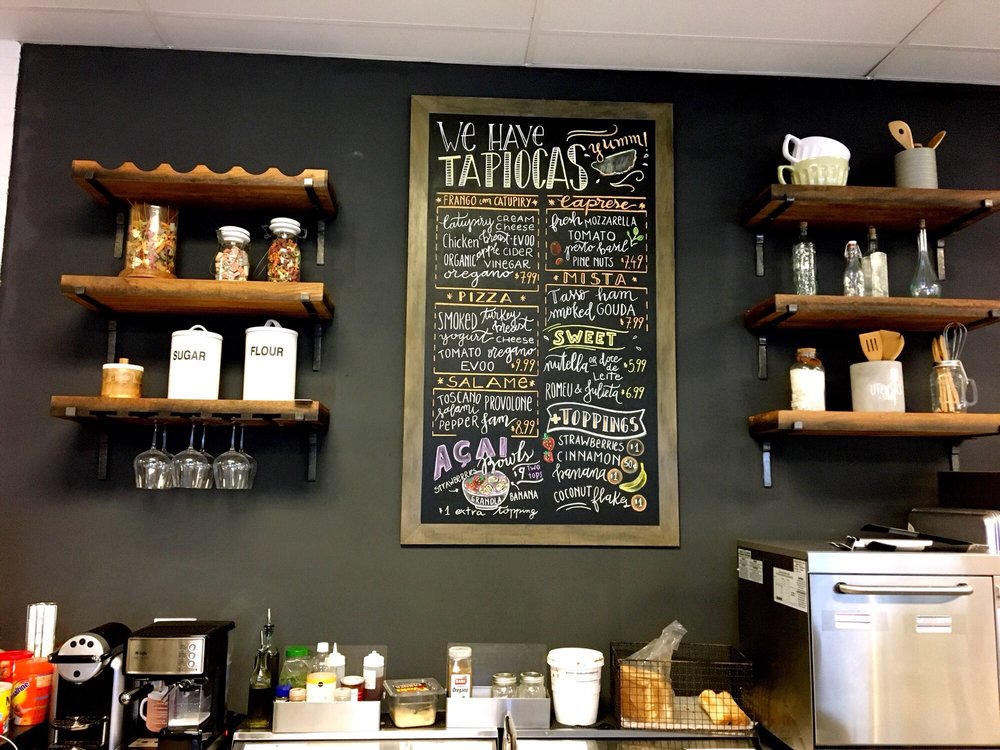 WE HAVE
TAPIOCAS
yumm!
FRANGO com CATUPIRY
Catupiry CREAM CHEESE
Chicken breast EVOO
ORGANIC apple CIDER
VINEGAR
oregano $7.99
* PIZZA *
SMOKED turkey breast
yogurt CHEESE
TOMATO oregano
EVOO $9.99
* SALAME *
TOSCANO PROVOLONE
salami
PEPPER Jam $8.99
ACAI
Bowls
$9 TWO TOPS
STRAWBERRIES
GRANOLA
BANANA
$1 extra topping
* Caprese *
fresh MOZZARELLA
TOMATO
pesto basil
PINE NUTS $7.49
* MISTA *
Tasso ham
smoked GOUDA
$7.99
SWEET
nutella OR doce de $5.99
LEITE
ROMEU & Julieta $6.99
+TOPPINGS
STRAWBERRIES $1
CINNAMON 50¢
banana $1
COCONUT flakes $1
SUGAR
FLOUR
UTENSILS
Oregano